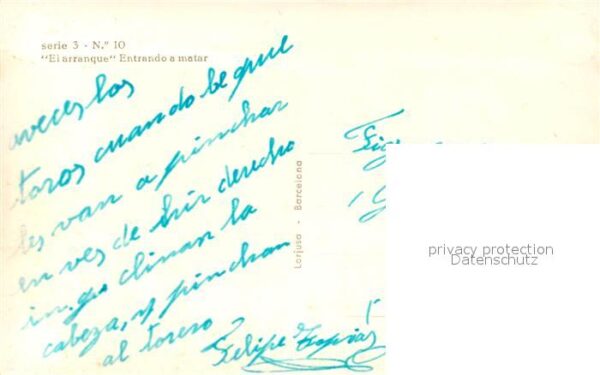 serie 3 - N.º 10
"El arranque" Entrando a matar
aveces los
toros cuando be que
les van a pinchar
en ves de hir derecho
in.go clinan la
cabeza, y pinchan
al torero
Felipe
Lorjusa - Barcelona
privacy protection
Datenschutz